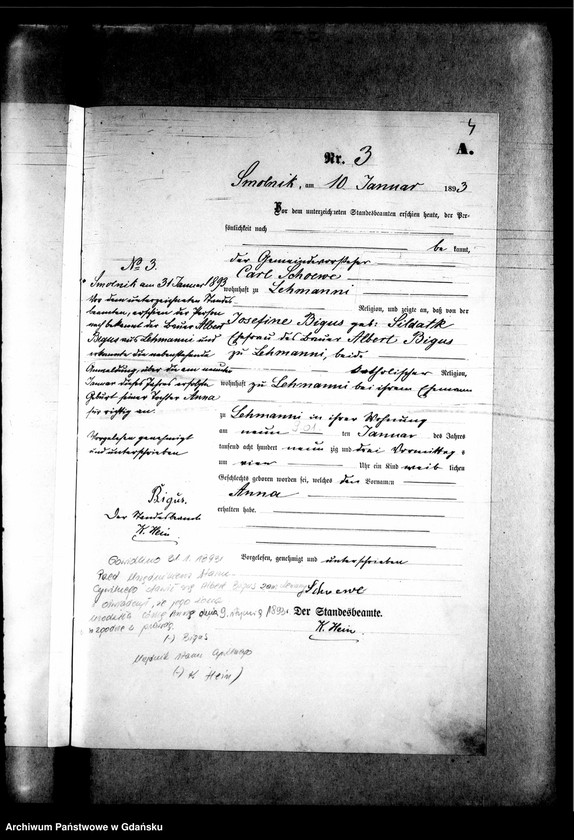 4
A.
Nr. 3
Smolnik, am 10 Januar 1893
Vor dem unterzeichneten Standesbeamten erschien heute, der Per-
sönlichkeit nach
be kannt,
der Gemeindevorsteher
Carl Schoewe
wohnhaft zu Lehmanni
Religion, und zeigte an, daß von der
Josefine Bigus geb:
Ehefrau des Bauer Albert Bigus
zu Lehmanni, beide
katholischer Religion,
wohnhaft zu Lehmanni bei ihrem Ehemann
zu Lehmanni in ihrer Wohnung
am neun ten Januar des Jahres
tausend acht hundert neunzig und drei Vormittags
um vier Uhr ein Kind weib lichen
Geschlechts geboren worden sei, welches den Vornamen
Anna
erhalten habe.
Vorgelesen, genehmigt und unterschrieben
Schoewe
Der Standesbeamte.
K. Hein
No 3.
Smolnik am 31 Januar 1893
Vor dem unterzeichneten Standes
beamten, erschien der Person
nach bekannt der Bauer Albert
Bigus aus Lehmanni und
erkannte die nebenstehende
Anmeldung, über die am neunten
Januar dieses Jahres erfolgte
Geburt seiner Tochter Anna
für richtig an.
Vorgelesen genehmigt
und unterschrieben
Bigus.
Der Standesbeamte
K. Hein
31.1.1893
Albert Bigus
że jego
Anna dnia 9. 1893r.
(-) Bigus
(-) K Hein)
Archiwum Państwowe w Gdańsku